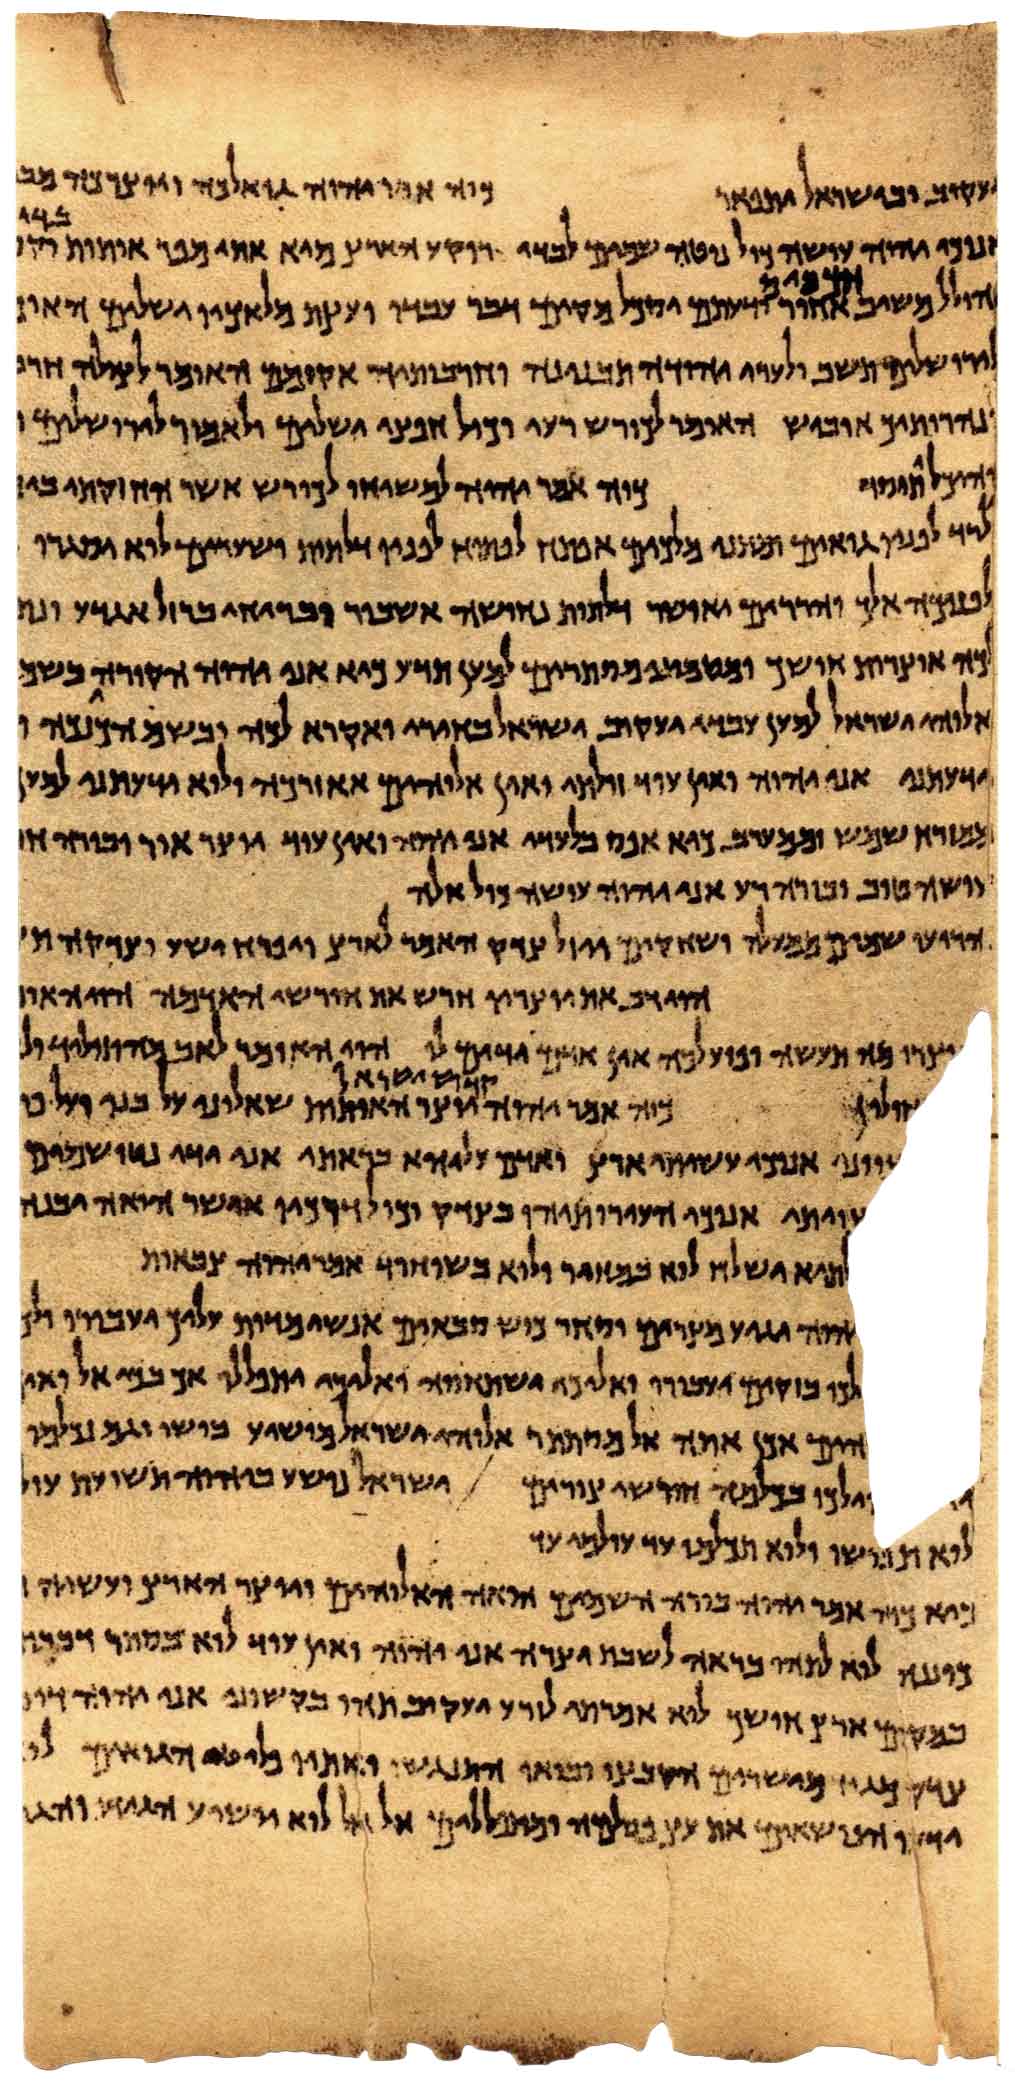 יעקוב ובישראל יתפאר כוה אמר יהוה גואלכה ויוצרכה מב
בדי
אנוכי יהוה עושה כול נוטה שמים לבדי רוקע הארץ מיא אתי מפר אותות
חכמים
יהולל משיב אחור ודעתם יסכל מקים דבר עבדו ועצת מלאכיו ישלים האומ
לירושלים תשב ולערי יהודה תבנינה וחרבותיה אקומם האומר לצולה חרב
ונהרותיך אוביש האומר לכורש רעי וכול חפצי ישלים ולאמור לירושלים
והיכל כוה אמר יהוה למשיחו לכורש אשר החזקתי בימ
לרד לפניו גואים מלכים אפתח לפתוח לפניו דלתות ושערים לוא יסגרו
לפניכה אלך והררים יאושר דלתות נחושה אשבור ובריחי ברזל אגדע ונת
לכה אוצרות חושך ומטמוני מסתרים למען תדע כיא אני יהוה הקורה בשמ
אלוהי ישראל למען עבדי יעקוב וישראל בחירי ואקרא לכה ובשם הכינכה
ידעתני אני יהוה ואין עוד זולתי ואין אלוהים אאזרכה ולוא ידעתני למען
ממזרח שמש וממערב כיא אפס בלעדי אני יהוה ואין עוד יוצר אור ובורה חו
עושה טוב ובורה רע אני יהוה עושה כול אלה
הריעו שמים ממעלה ושחקים ויזל צדק האמר לארץ ויפרח ישע וצדקה
הוי רב את יוצריו חרש את חורשי האדמה הוי האומ
ליוצרו מה תעשה ופועלכה אין אדם ידים לו הוי האומר לאב מה תוליד ול
קדוש ישראל
תחולין כוה אמר יהוה יוצר האותות שאלוני על בני ועל פו
תצווני אנוכי עשיתי ארץ ואדם עליהא בראתי אני ידי נטו שמים
צויתי אנוכי העירותיהו בצדק וכול דרכיו אישר היאה יבנה
גלותיא ישלח לוא במחיר ולוא בשוחוד אמר יהוה צבאות
יהוה יגיע מצרים וסחר כוש סבאים אנשי מדות עליך יעבורו ולכ
ילכו בזקים יעבורו ואליכי ישתחוו ואליכי יתפללו אך בכי אל ואין
אלוהים אכן אתה אל מסתתר אלוהי ישראל מושיע בושו וגם נכלמו
ילכו בכלמה חרשי צורים ישראל נושע ביהוה תשועת עו
לוא תבושו ולוא תכלמו עד עולמי עד
כיא כוה אמר יהוה בורה השמים הואה האלוהים ויוצר הארץ ועושה
כוננה לוא לתהו בראה לשבת יצרה אני יהוה ואין עוד לוא בסתר דברת
במקום ארץ חושך לוא אמרתי לזרע יעקוב תהו בקשוני אני יהוה דו
צדק מגיד מישרים הקבצו ובואו התנגשו ואתיו פליטי הגואים לו
ידעו הנושאים את עץ פסלמה ומתפללים אל אל לוא יושיע הגידו והג